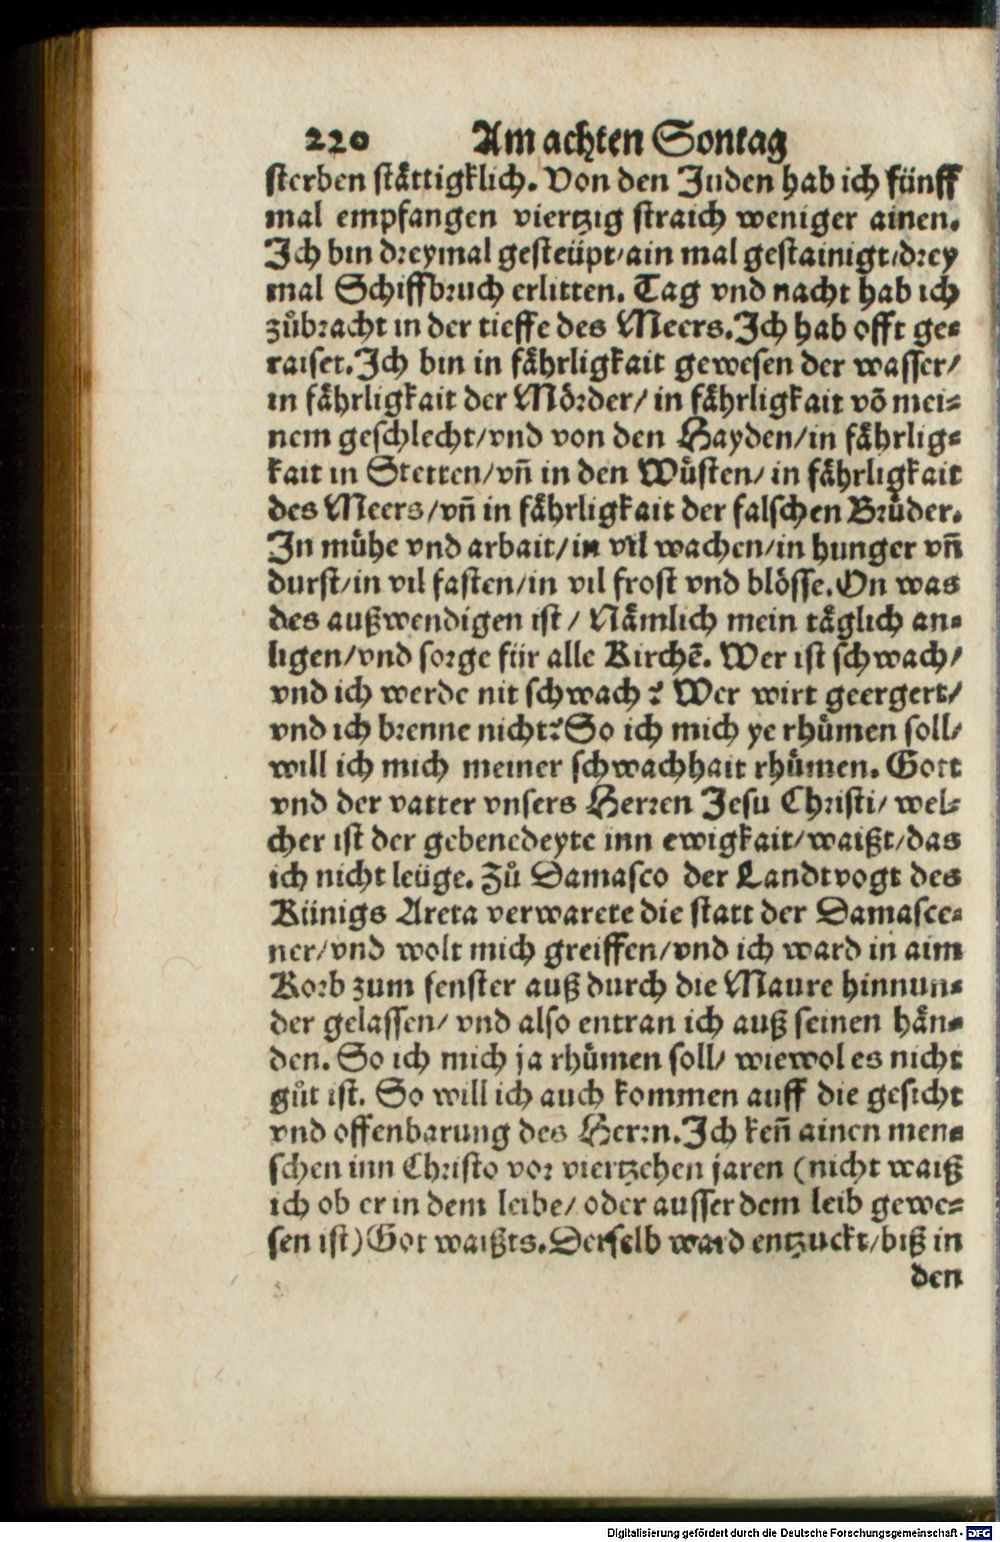 220 Am achten Sontag
sterben stättigklich. Von den Juden hab ich fünff
mal empfangen viertzig straich weniger ainen.
Ich bin dreymal gesteüpt/ain mal gestainigt/drey
mal Schiffbruch erlitten. Tag vnd nacht hab ich
zůbracht in der tieffe des Meers. Ich hab offt ge-
raiset. Ich bin in fährligkait gewesen der wasser/
in fährligkait der Mörder/ in fährligkait võ mei-
nem geschlecht/vnd von den Hayden/in fährlig-
kait in Stetten/vñ in den Wüsten/ in fährligkait
des Meers/vñ in fährligkait der falschen Brůder.
In můhe vnd arbait/in vil wachen/in hunger vñ
durst/in vil fasten/in vil frost vnd blösse. On was
des außwendigen ist/ Nämlich mein täglich an-
ligen/vnd sorge für alle Kirchẽ. Wer ist schwach/
vnd ich werde nit schwach? Wer wirt geergert/
vnd ich brenne nicht? So ich mich ye rhůmen soll/
will ich mich meiner schwachhait rhůmen. Gott
vnd der vatter vnsers Herren Jesu Christi/ wel-
cher ist der gebenedeyte inn ewigkait/waißt/das
ich nicht leüge. Zů Damasco der Landtvogt des
Künigs Areta verwarete die statt der Damasce-
ner/vnd wolt mich greiffen/vnd ich ward in aim
Korb zum fenster auß durch die Maure hinnun-
der gelassen/ vnd also entran ich auß seinen hän-
den. So ich mich ja rhůmen soll/ wiewol es nicht
gůt ist. So will ich auch kommen auff die gesicht
vnd offenbarung des Herrn. Ich keñ ainen men-
schen inn Christo vor viertzehen jaren (nicht waiß
ich ob er in dem leibe/ oder ausser dem leib gewe-
sen ist) Got waißts. Derselb ward entzuckt/biß in
den
Digitalisierung gefördert durch die Deutsche Forschungsgemeinschaft - DFG